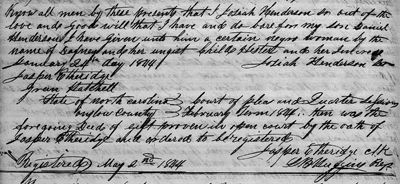 Know all men by these presents that I Josiah Henderson Sr out of the
love and good will that I have and do bare for my son Daniel
Henderson I have Given unto him a certain negro woman by the
name of Dafney and her ungest child and her Increase
January 20th day 1844 Josiah Henderson Sr
Jasper Etheridge
Gran
State of North Carolina Court of plea and Quarter Sessions
Onslow County February Term 1844. then was the
foregoing Deed of gift proven in open court by the oath of
Jasper Etheridge and ordered to be registered
Jasper Etheridge clk
Registered May 2nd 1844 Regr